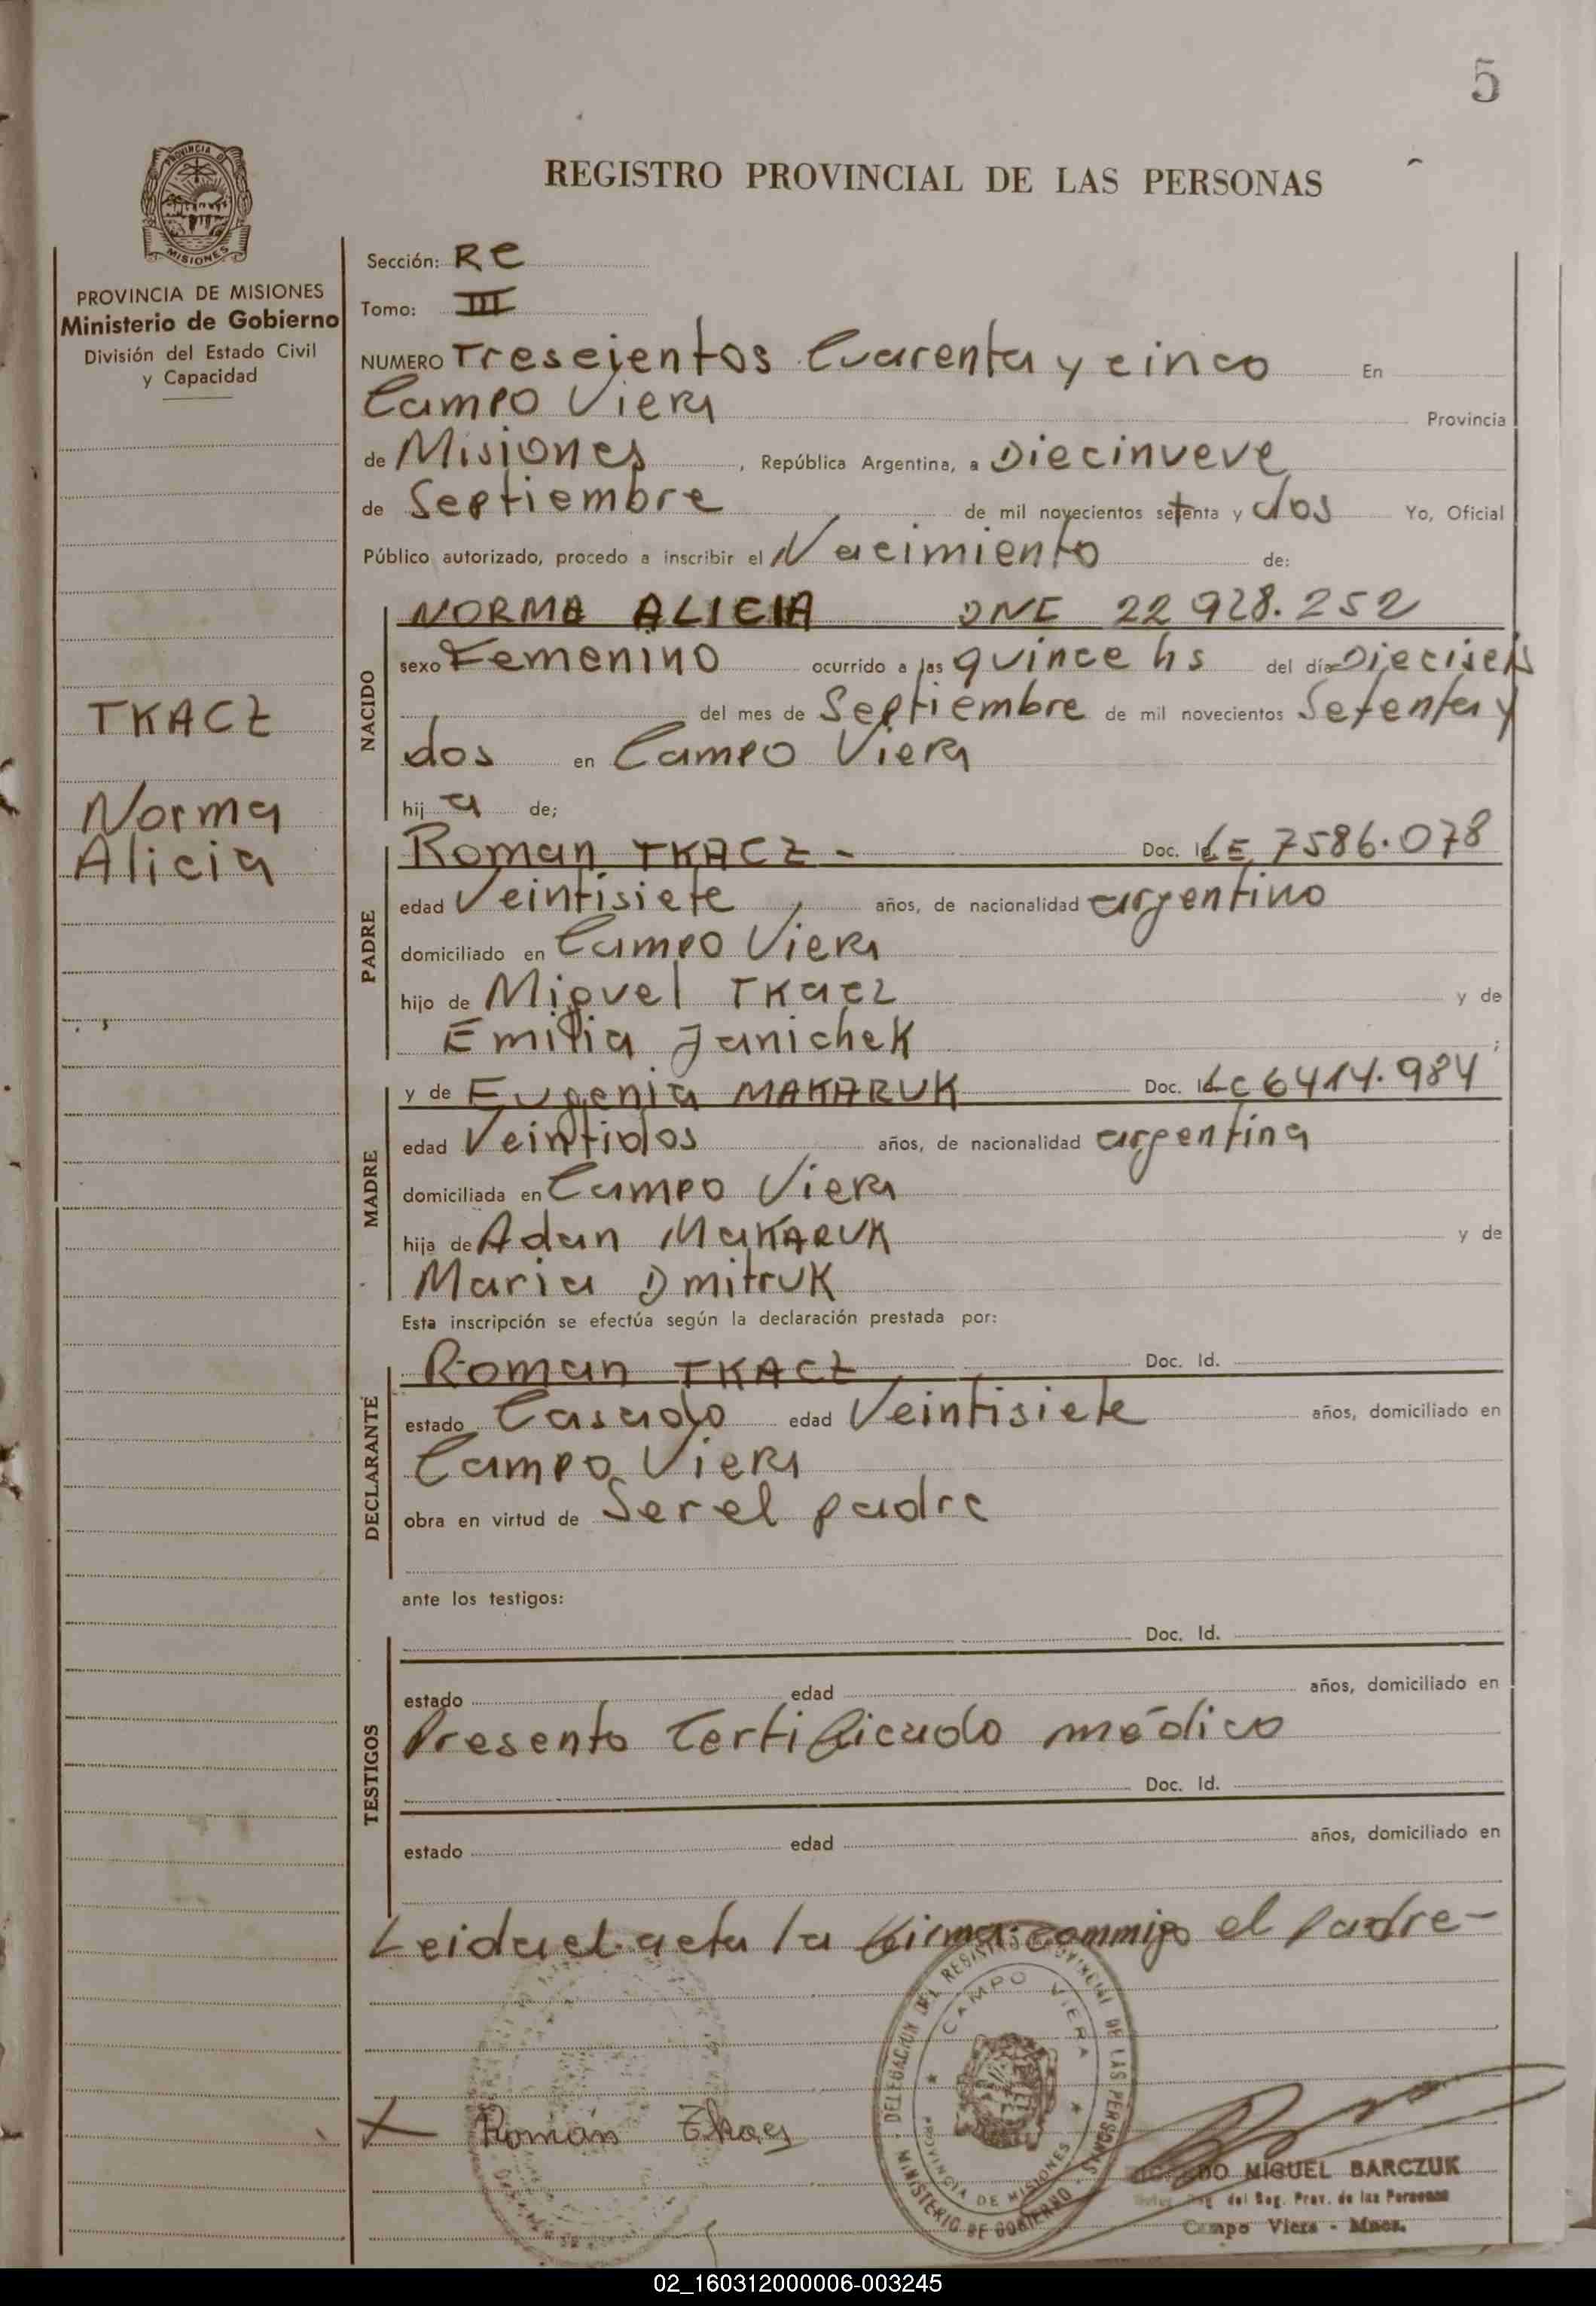 5
REGISTRO PROVINCIAL DE LAS PERSONAS
PROVINCIA DE MISIONES
Ministerio de Gobierno
División del Estado Civil
y Capacidad
TKACZ
Norma
Alicia
Sección: RC
Tomo: III
NUMERO Trescientos Cuarenta y cinco En
Campo Viera Provincia
de Misiones, República Argentina, a Diecinueve
de Septiembre de mil novecientos setenta y dos Yo, Oficial
Público autorizado, procedo a inscribir el Nacimiento de:
NACIDO
NORMA ALICIA DNI 22 928.252
sexo Femenino ocurrido a las quince hs del día Dieciseis
del mes de Septiembre de mil novecientos Setenta y
dos en Campo Viera
hija de;
PADRE
Roman TKACZ - Doc. Id. LE 7586.078
edad Veintisiete años, de nacionalidad argentino
domiciliado en Campo Viera
hijo de Miguel Tkacz y de
Emilia Janichek ;
MADRE
y de Eugenia MAKARUK Doc. Id. LC 6414.984
edad Veintidos años, de nacionalidad argentina
domiciliada en Campo Viera
hija de Adan MaKARUK y de
Maria DmitruK
Esta inscripción se efectúa según la declaración prestada por:
DECLARANTE
Roman TKACZ Doc. Id.
estado Casado edad Veintisiete años, domiciliado en
Campo Viera
obra en virtud de Ser el padre
ante los testigos:
TESTIGOS
Doc. Id.
estado edad años, domiciliado en
Presento Certificado médico
Doc. Id.
estado edad años, domiciliado en
Leida el acta la firma conmigo el Padre-
DELEGACION DEL REGISTRO PROVINCIAL DE LAS PERSONAS
CAMPO VIERA
PROVINCIA DE MISIONES
MINISTERIO DE GOBIERNO
X Román Tkacz
MIGUEL BARCZUK
del Reg. Prov. de las Personas
Campo Viera - Mnes.
02_160312000006-003245